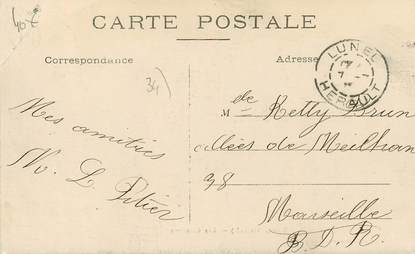 CARTE POSTALE
Correspondance
Adresse
LUNEL
HERAULT
34
Mes amitiés
M de Ketty Brun
Allées de Meilhan
98
Marseille
B. D. R.